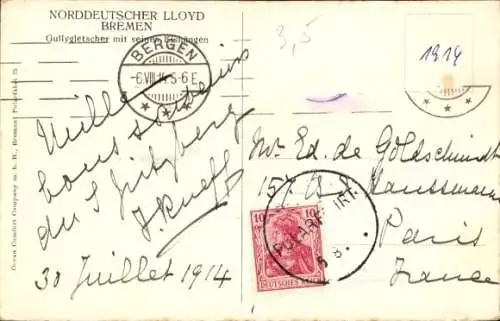 NORDDEUTSCHER LLOYD
BREMEN
Gullygletscher mit seinen
BERGEN
-6 VIII 14 5-6 E
3,5
1914
Ocean Comfort Company m. b. H., Bremen
Mille
bons souvenirs
du Spitzberg
J. Rueff
30 Juillet 1914
Mr Ed. de Goldschmidt
157 Bd Haussmann
Paris
France
POLARFAHRT
5 8.
10 10
DEUTSCHES REICH